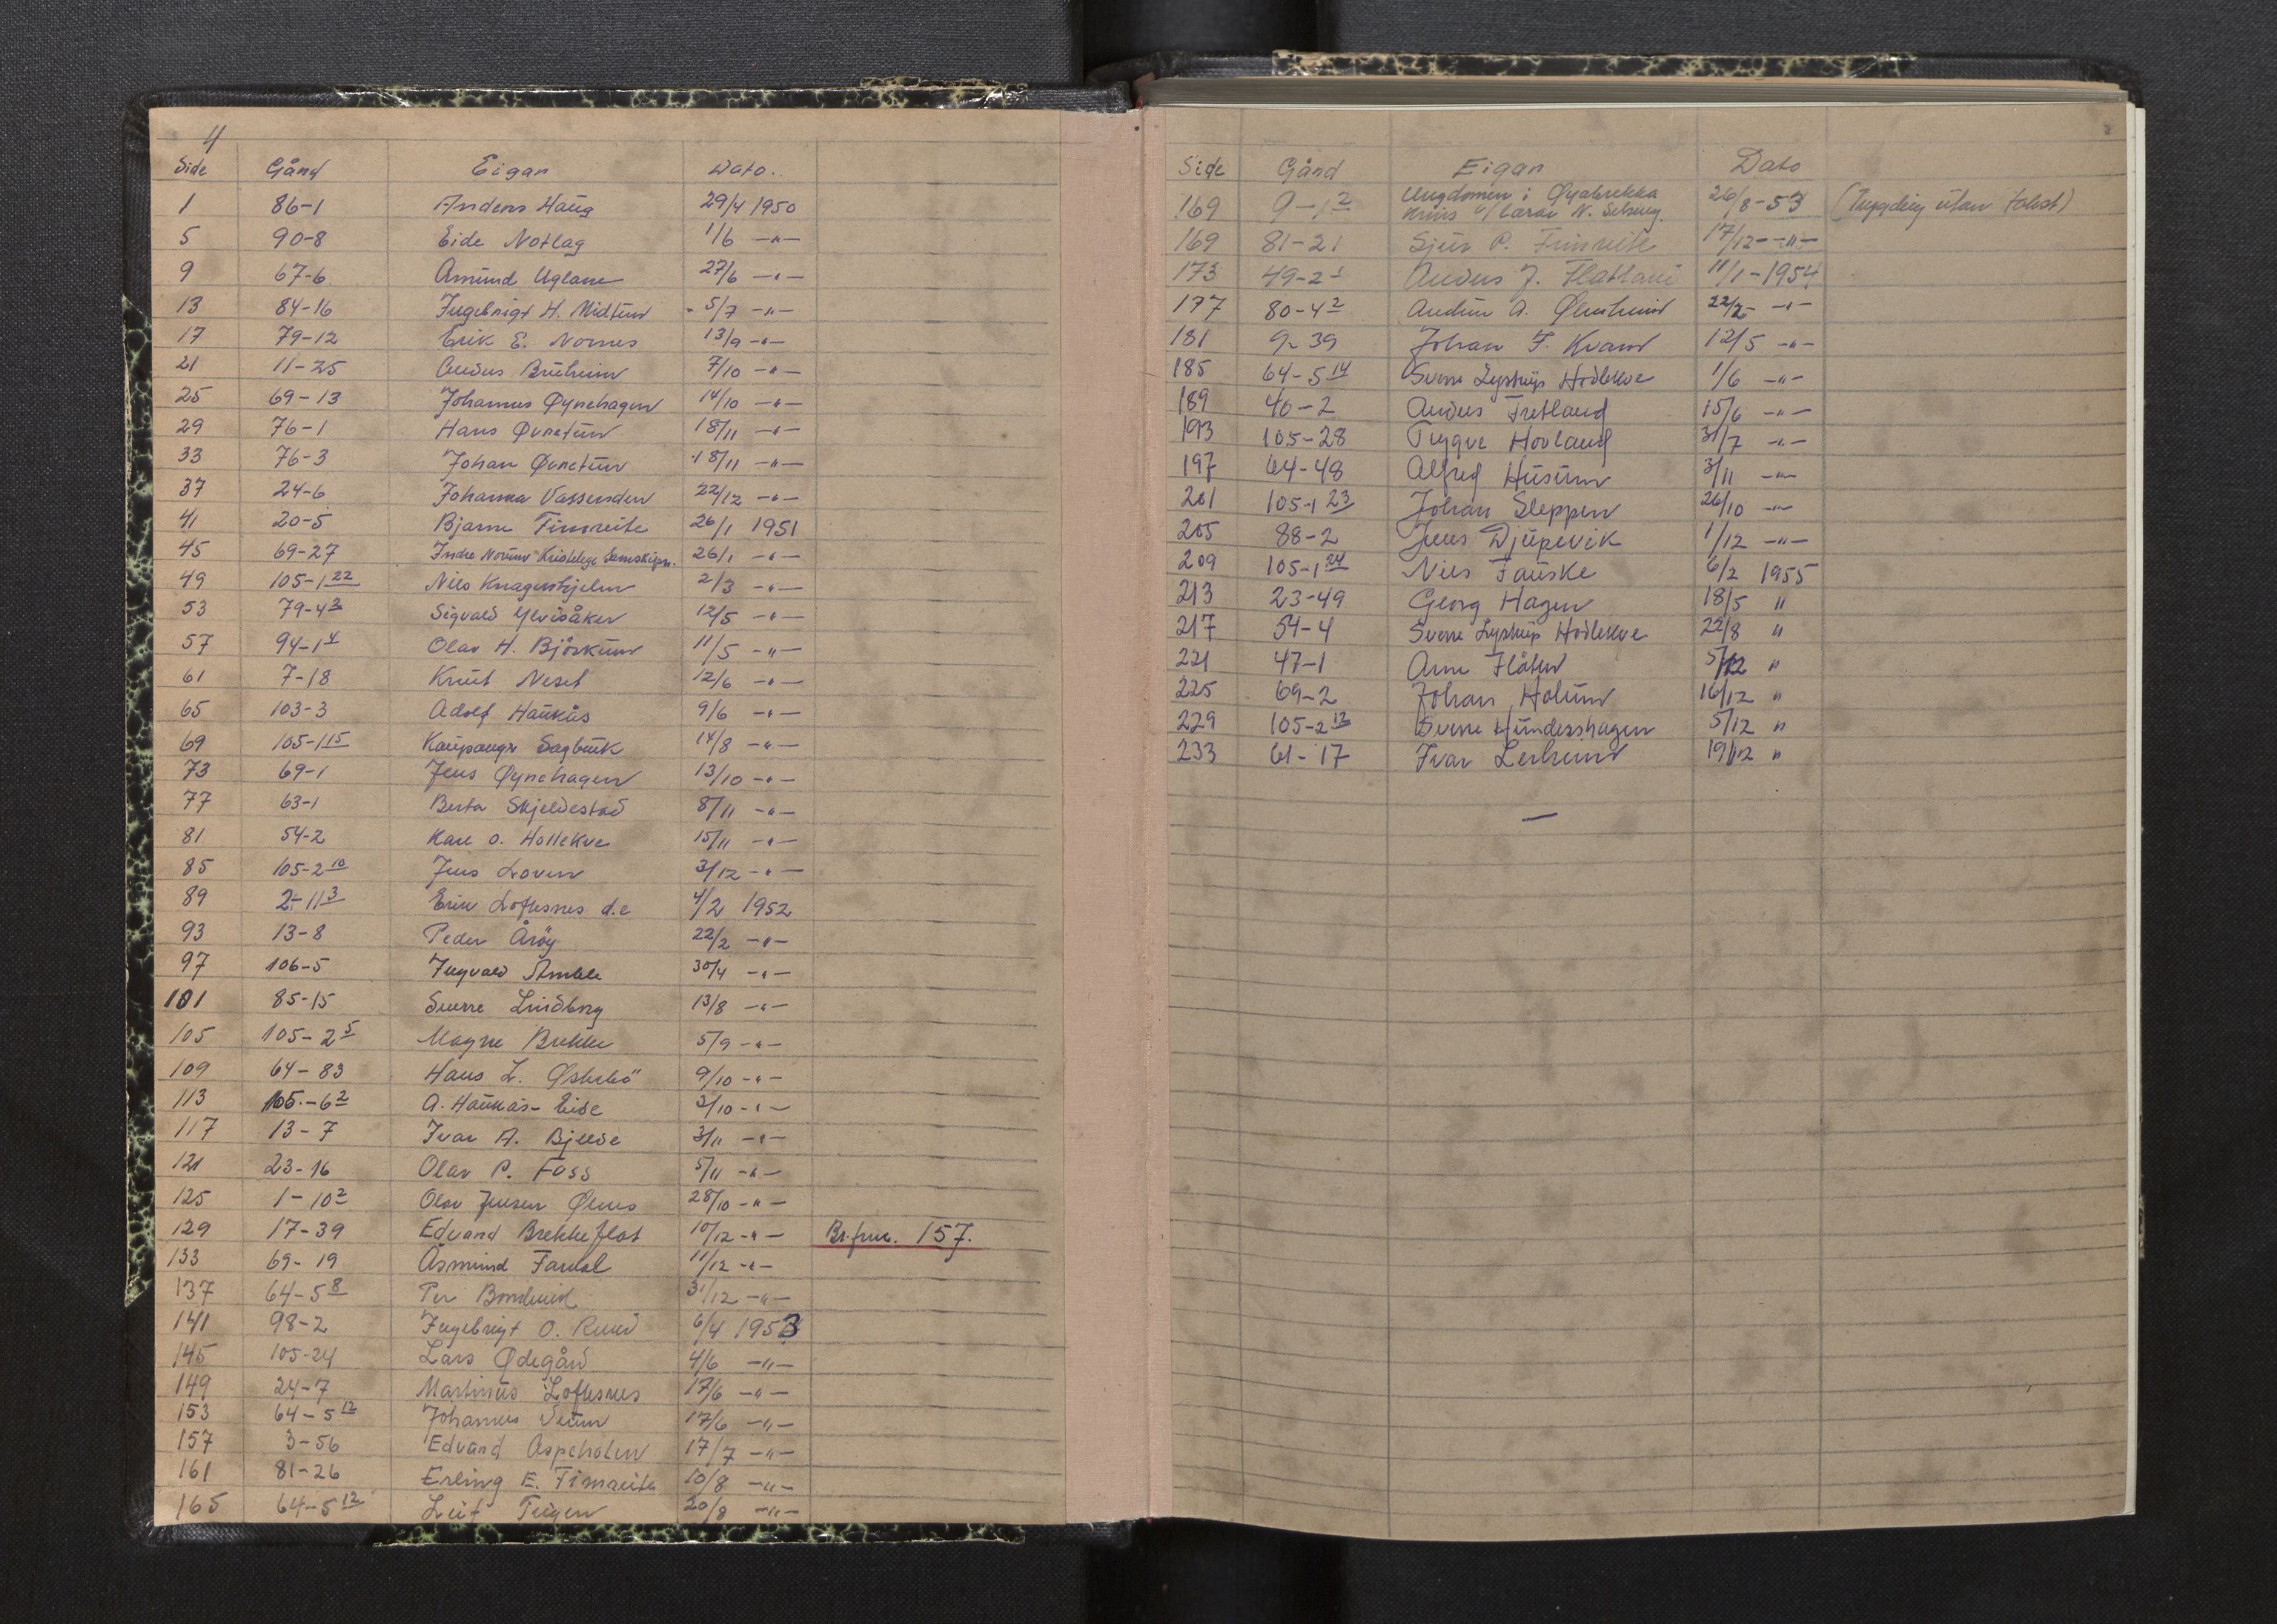 4
Side Gård Eigar Dato.
1 86-1 Anders Haug 29/4 1950
5 90-8 Eide Notlag 1/6 -"-
9 67-6 Amund Uglane 27/6 -"-
13 84-16 Ingebrigt H. Midtun 5/7 -"-
17 79-12 Erik E. Nornes 13/9 -"-
21 11-25 Anders Bruheim 7/10 -"-
25 69-13 Johannes Øynehagen 14/10 -"-
29 76-1 Hans Øvretun 18/11 -"-
33 76-3 Johan Øvretun 18/11 -"-
37 24-6 Johanna Vassenden 22/12 -"-
41 20-5 Bjarne Timreite 26/1 1951
45 69-27 Indre Norum Kristelege 26/1 -"-
49 105-1 22 Nils Knagenhjelm 2/3 -"-
53 79-4 3 Sigvald Ylvisåker 12/5 -"-
57 94-1 4 Olav H. Bjørkum 11/5 -"-
61 7-18 Knut Neset 12/6 -"-
65 103-3 Adolf Haukås 9/6 -"-
69 105-1 15 Kaupanger Sagbruk 14/8 -"-
73 69-1 Jens Øynehagen 13/10 -"-
77 63-1 Berta Skjeldestad 8/11 -"-
81 54-2 Kare O. Hollekve 15/11 -"-
85 105-2 10 Jens Loven 3/12 -"-
89 2-11 3 Erik Loftesnes d.e 4/2 1952
93 13-8 Peder Årøy 22/2 -"-
97 106-5 Ingvald Amble 30/4 -"-
101 85-15 Sverre Lindborg 13/8 -"-
105 105-2 5 Magne Brekke 5/9 -"-
109 64-83 Hans L. Østrebö 9/10 -"-
113 105-6 2 A. Haukås-Eide 2/10 -"-
117 13-7 Ivar A. Bjelde 3/11 -"-
121 23-16 Olav P. Foss 5/11 -"-
125 1-10 2 Olav Jensen Ølnes 28/10 -"-
129 17-39 Edvard Brekkeflat 10/12 -"- Br.pr. 157.
133 69-19 Åsmund Fardal 11/12 -"-
137 64-5 8 Per Bondevik 31/12 -"-
141 98-2 Ingebrigt O. Rud 6/4 1953
145 105-24 Lars Ødegård 4/6 -"-
149 24-7 Martinus Loftesnes 17/6 -"-
153 64-5 12 Johannes Veum 17/6 -"-
157 3-56 Edvard Aspeholen 17/7 -"-
161 81-26 Erling E. Fimreite 10/8 -"-
165 64-5 12 Leif Teigen 20/8 -"-
Side Gård Eigar Dato
169 9-1 2 Ungdomen i Øyabrekka 26/8-53 (Tryggding utan takst)
Krins v/ Lærar N. Selseng
169 81-21 Sjur P. Fimreite 17/12 -"-
173 49-2 1 Anders J. Flatland 11/1-1954
177 80-4 2 Andreas A. Ølmheim 22/2 -"-
181 9-39 Johan F. Kvam 12/5 -"-
185 64-5 14 Sverre Lystrup Hodlekve 1/6 -"-
189 40-2 Anders Fretland 15/6 -"-
193 105-28 Trygve Hovland 31/7 -"-
197 64-48 Alfred Husum 3/11 -"-
201 105-1 23 Johan Sleppen 26/10 -"-
205 88-2 Jens Djupevik 1/12 -"-
209 105-1 24 Nils Fauske 6/2 1955
213 23-49 Georg Hagen 18/5 "
217 54-4 Sverre Lystrup Hodlekve 22/8 "
221 47-1 Arne Flåten 5/12 "
225 69-2 Johan Holum 16/12 "
229 105-2 12 Sverre Hundershagen 5/12 "
233 61-17 Ivar Lerum 19/12 "